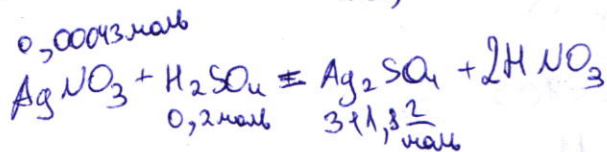 0,00043 моль
AgNO₃ + H₂SO₄ = Ag₂SO₄ + 2HNO₃
0,2 моль 311,8 г/моль